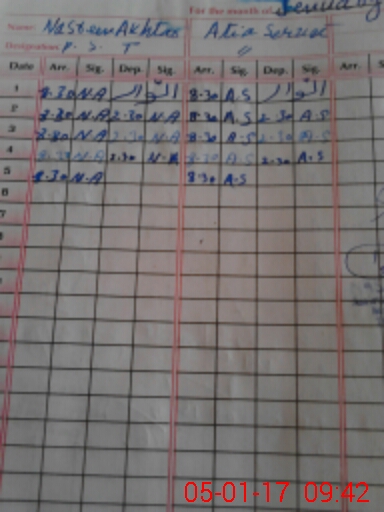 For the month of January
Name: Nasreen Akhtar Atia Serwat
Designation P. S. T "
Date Arr. Sig. Dep. Sig. Arr. Sig. Dep. Sig. Arr. S
1 8.30 N.A 8.30 A.S
2 8.30 N.A 2.30 N.A 8.30 A.S 2.30 A.S
3 8.30 N.A 2.30 N.A 8.30 A.S 2.30 A.S
4 8.30 N.A 2.30 N.A 8.30 A.S 2.30 A.S
5 8.30 N.A 8.30 A.S
6
7
8
9
10
05-01-17 09:42